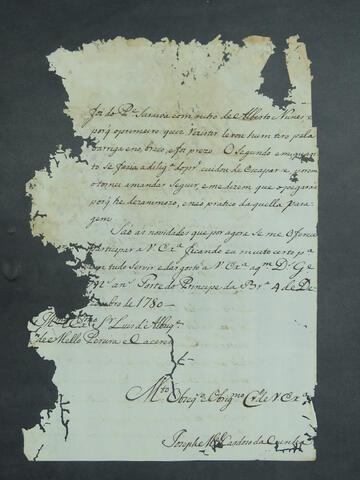 foi do Pe Saraiva com outro de Alberto Nunes, e
porq̃ o primeiro quiz rezistir levou hum tiro pela
barriga e no braço, e foi prezo. O segundo emquan-
to se fazia a dilig.a do pr.o cuidou de escapar-se, porem
o tornei a mandar seguir, e me dizem que o pegarão
porq̃ he dezanimozo, e não pratico daquella Para-
gem.
São as novidades que por agora se me oferece
participar a V Ex.a ficando eu muito certo p.a
em tudo servir e dar gosto a V Ex.a aq.m D.s G.e
m.s an.s Forte do Principe da Br.a 4 de De-
zembro de 1780 —
Ex.mo Snr Luis de Albuq.e
de Mello Pereira e Caceres
M.to Obrig.o Cr.do de V Ex.a
Joseph M.el Cardoso da Cunha